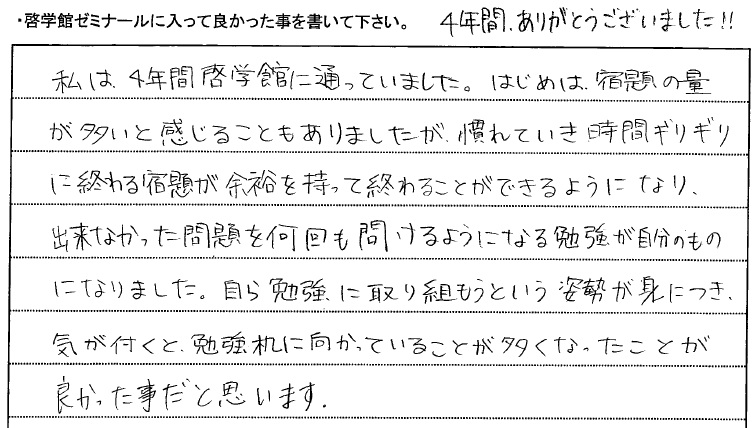 ・啓学館ゼミナールに入って良かった事を書いて下さい。 4年間、ありがとうございました!!
私は、4年間啓学館に通っていました。はじめは、宿題の量
が多いと感じることもありましたが、慣れていき時間ギリギリ
に終わる宿題が余裕を持って終わることができるようになり、
出来なかった問題を何回も問けるようになる勉強が自分のもの
になりました。自ら勉強に取り組もうという姿勢が身につき、
気が付くと、勉強机に向かっていることが多くなったことが
良かった事だと思います.